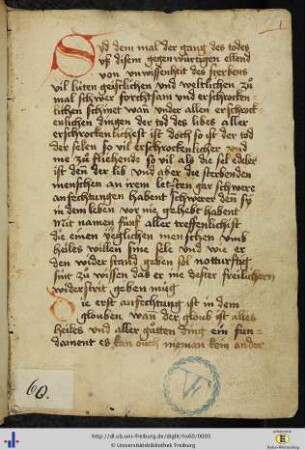 Sid dem mal der gang des todes
vß disem gegenwürtigen ellend
von vnwissenheit des sterbens
vil lüten geistlichen vnd weltlichen zů
mal schwer forchtsam vnd erschrocken
lichen schinet wan vnder allen erschrock
enlichen dingen der tod des libes aller
erschrockenlichest ist doch so ist der tod
der selen so vil erschrockenlicher vnd
me zů fliehende so vil als die sel edeler
ist denn der lib vnd aber die sterbenden
menschen an irem letsten gar schwere
anfechtungen habent schwerer den sy
in dem leben vor nie gehebt habent
Mit namen fünf aller treffenlichist
die einen yeglichen menschen vmb
heiles willen sine sele vnd wie er
den wider stand geben sol notturftig
sint zů wissen das er ine dester
widerstrit geben mug
Die erst anfechtung ist in dem
glouben wan der gloub ist alles
heiles vnd aller gůtten ding ein fun=
dament es kan ouch nieman kein ander
60.
http://dl.ub.uni-freiburg.de/diglit/hs60/0005
© Universitätsbibliothek Freiburg
Baden-Württemberg